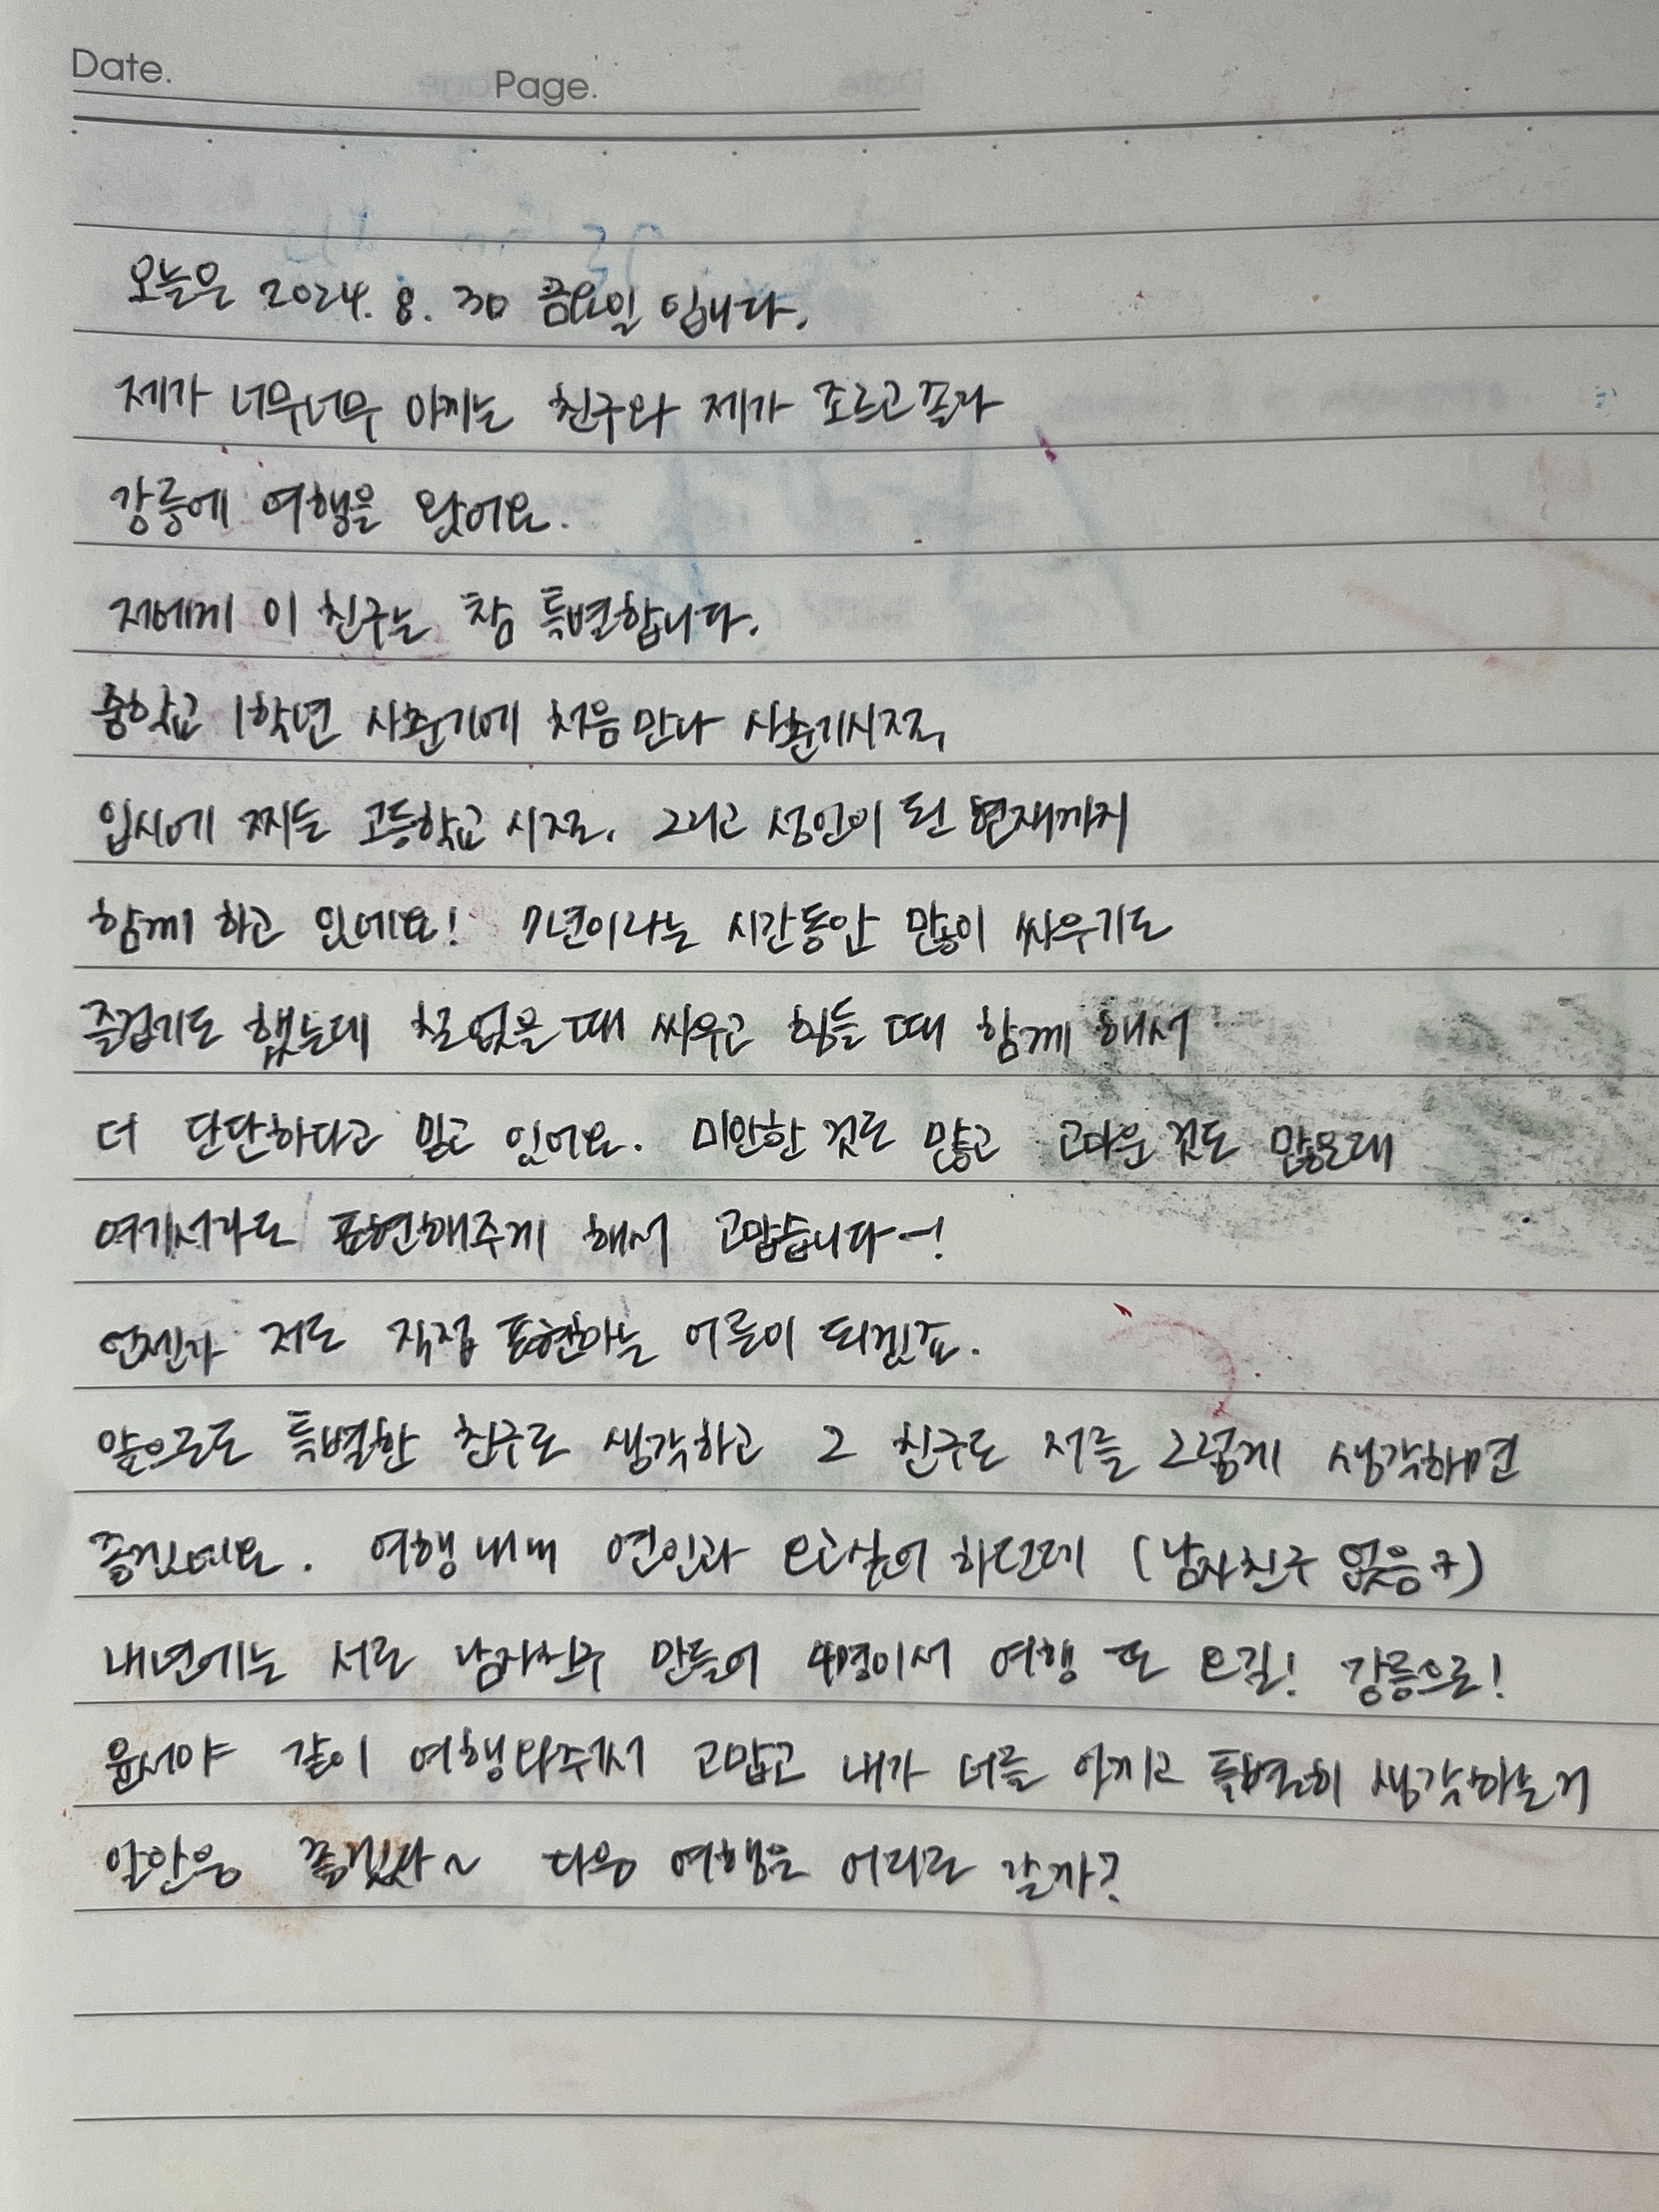 Date. Page.
오늘은 2024. 8. 30 금요일 입니다.
제가 너무너무 아끼는 친구와 제가 조르고 졸라
강릉에 여행을 왔어요.
저에게 이 친구는 참 특별합니다.
중학교 1학년 사춘기에 처음 만나 사춘기시절,
입시에 찌든 고등학교 시절, 그리고 성인이 된 현재까지
함께 하고 있네요! 7년이라는 시간동안 많이 싸우기도
즐겁기도 했는데 철없을 때 싸우고 힘들 때 함께 해서
더 단단하다고 믿고 있어요. 미안한 것도 많고 고마운 것도 많은데
여기서라도 표현해주게 해서 고맙습니다~!
언젠가 저도 직접 표현하는 어른이 되겠죠.
앞으로도 특별한 친구로 생각하고 그 친구도 저를 그렇게 생각하면
좋겠네요. 여행 내내 연인과 오고싶어 하던데 (남자친구 없음ㅋ)
내년에는 서로 남자친구 만들어 4명이서 여행 또 오길! 강릉으로!
윤서야 같이 여행와줘서 고맙고 내가 너를 아끼고 특별히 생각하는거
알안음 좋겠다~ 다음 여행은 어디로 갈까?